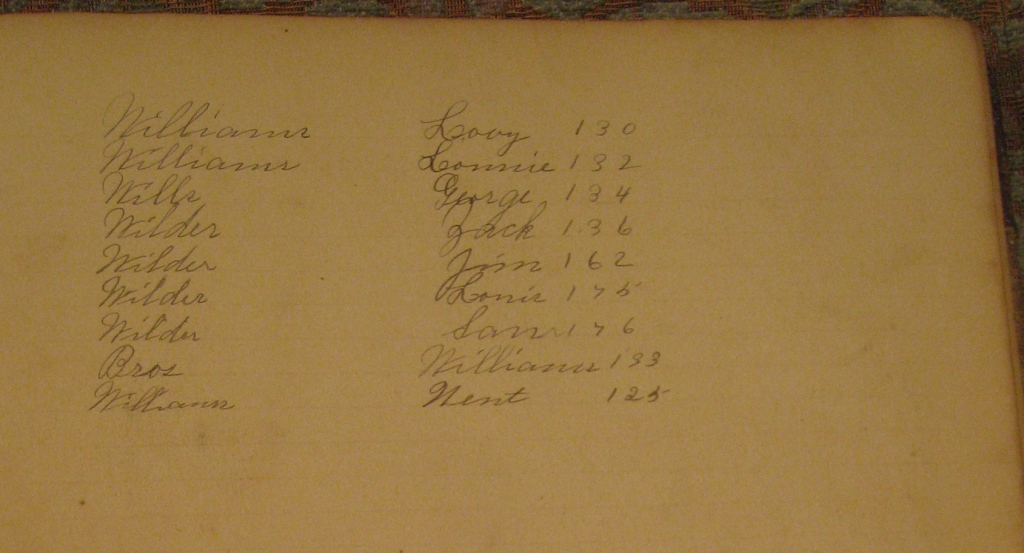 Williams Lovy 130
Williams Lonnie 132
Wills George 134
Wilder Jack 136
Wilder Jim 162
Wilder Louis 175
Wilder Sam 176
Bros Williams 133
Williams 125